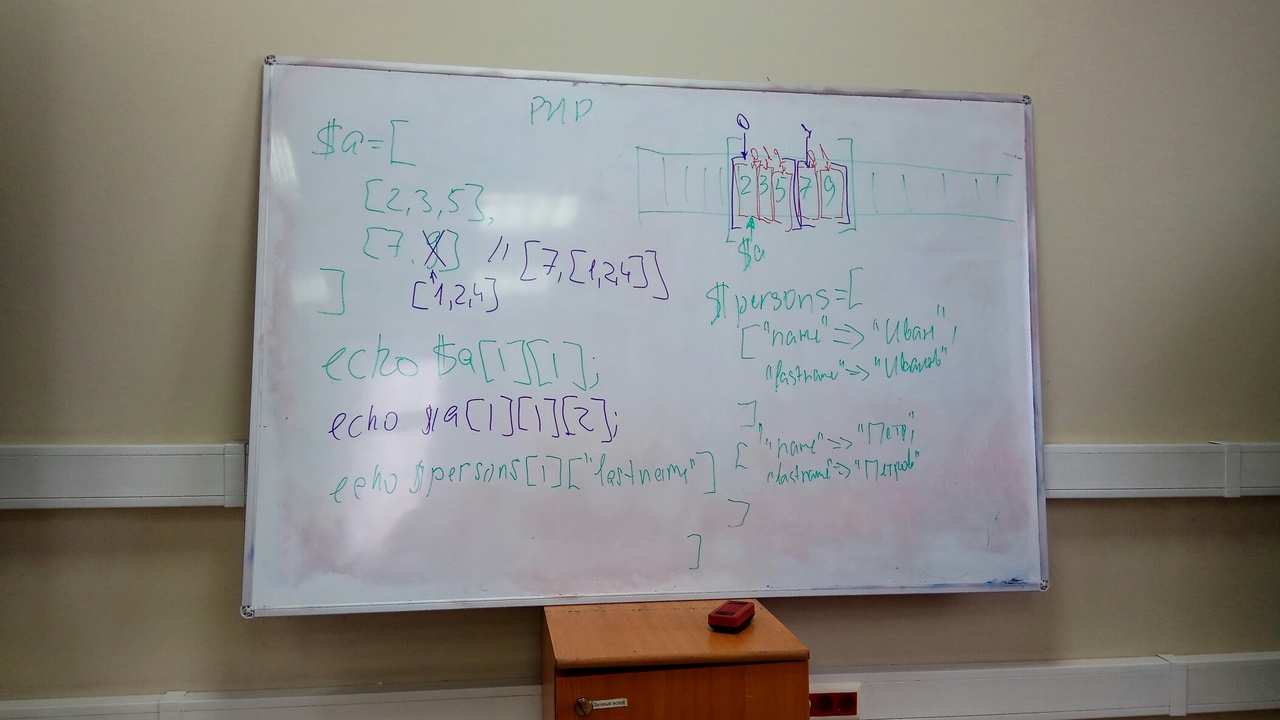 PHP
$a=[
[2,3,5],
[7, 9] // [7,[1,2,4]]
[1,2,4]
]
echo $a[1][1];
echo $a[1][1][2];
echo $persons[1]["lastname"]
0 1
0 1 2 0 1
2 3 5 7 9
$a
$persons=[
["name"=>"Иван",
"lastname"=>"Иванов"
],
["name"=>"Петр",
"lastname"=>"Петров"
]
]
Личные вещи